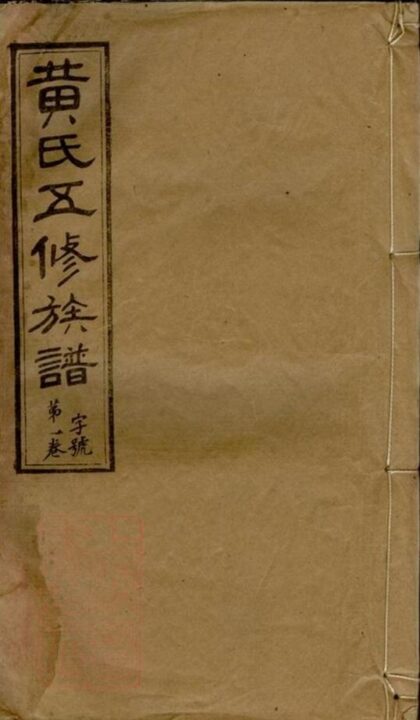 黄氏五修族譜
字號
第一卷